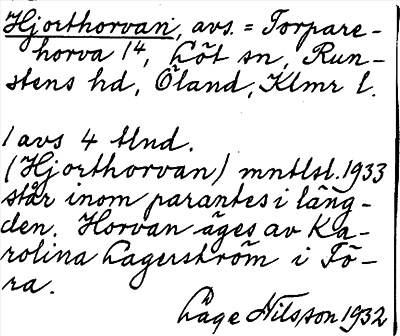 Hjorthorvan, avs. = Torpare-
horva 1⁴, Löt sn, Run-
stens hd, Öland, Klmr l.
1 avs 4 tlnd.
(Hjorthorvan) mntlsl. 1933
står inom parantes i läng-
den. Horvan äges av Ka-
rolina Lagerström i Tö-
ra.
Låge Nilsson 1932